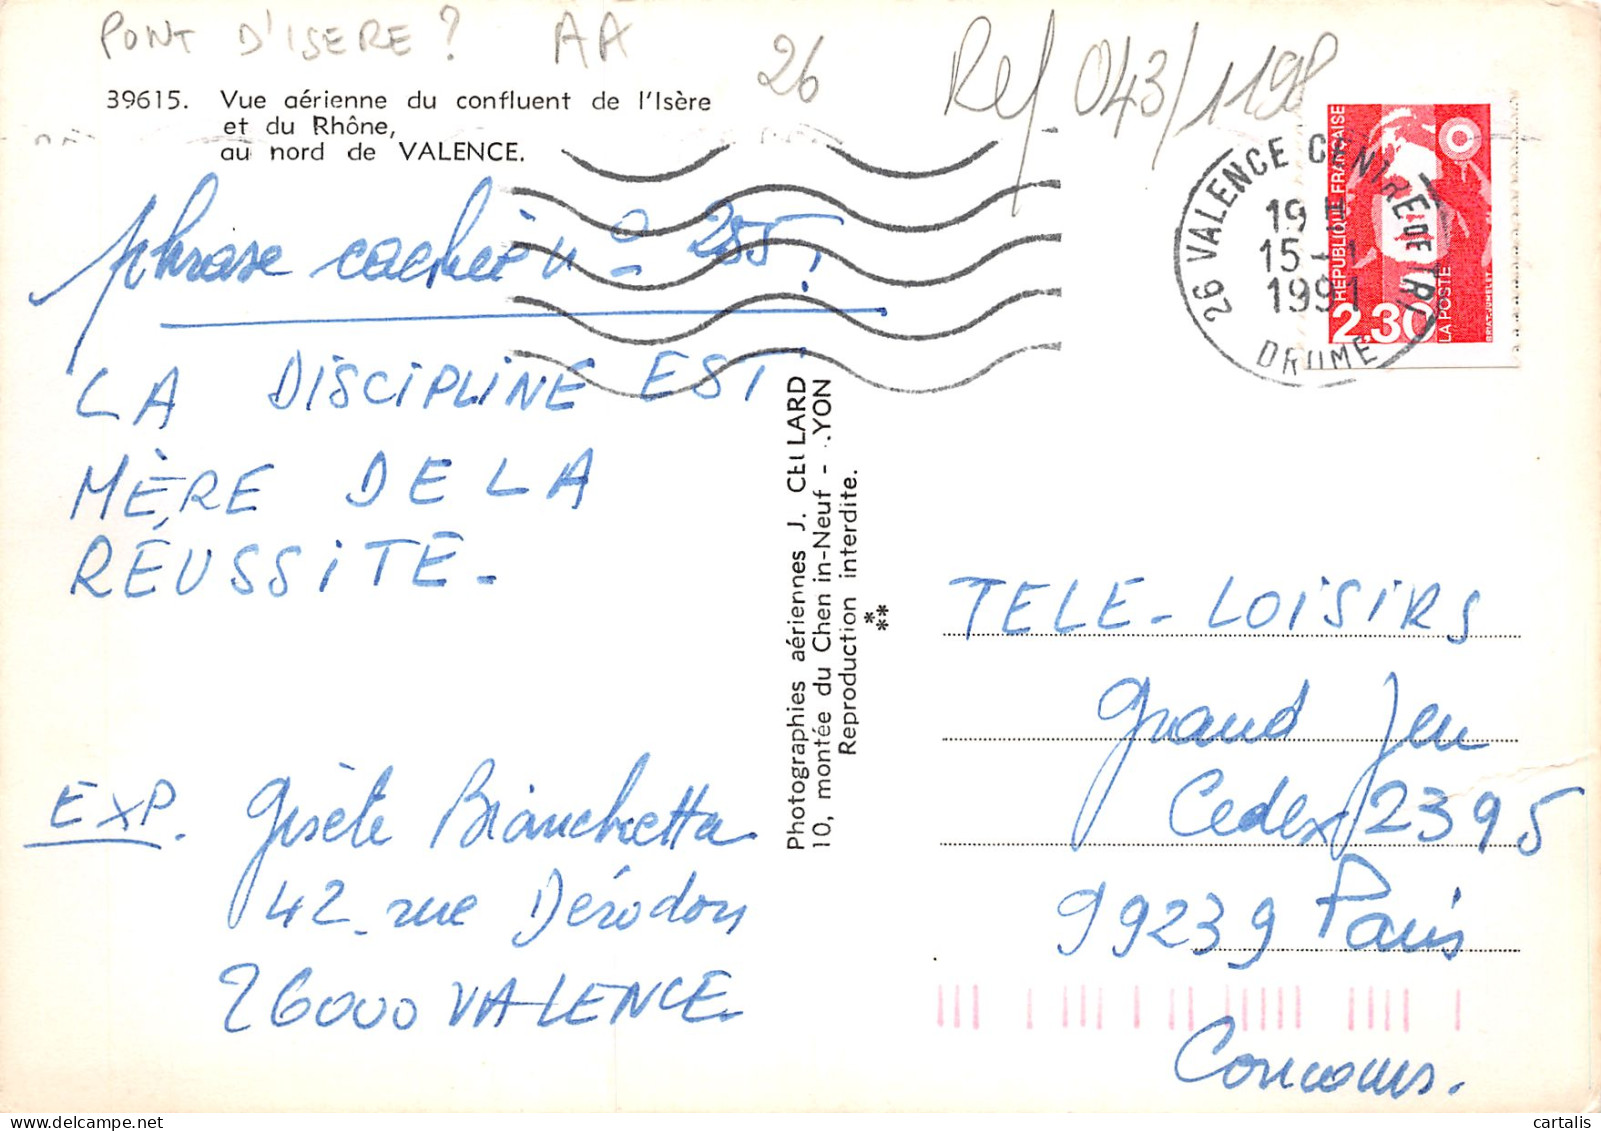 PONT D'ISERE ? AA 26
Ref 043/1198
39615. Vue aérienne du confluent de l'Isère
et du Rhône,
au nord de VALENCE.
phrase cachée n° 255 :
LA DISCIPLINE EST
MÈRE DE LA
RÉUSSITE -
EXP. Gisèle Bianchetta
42 - rue Dérodon
26000 VALENCE
Photographies aériennes J. CELLARD
10, montée du Chemin-Neuf - LYON
Reproduction interdite.
26 VALENCE CENTRE DE TRI
19 H
15 - 1
1991
DROME
RÉPUBLIQUE FRANÇAISE
2,30
LA POSTE
TELE - LOISIRS
Grand Jeu
Cedex 2395
99239 Paris
Concours.
cartalis
www.delcampe.net